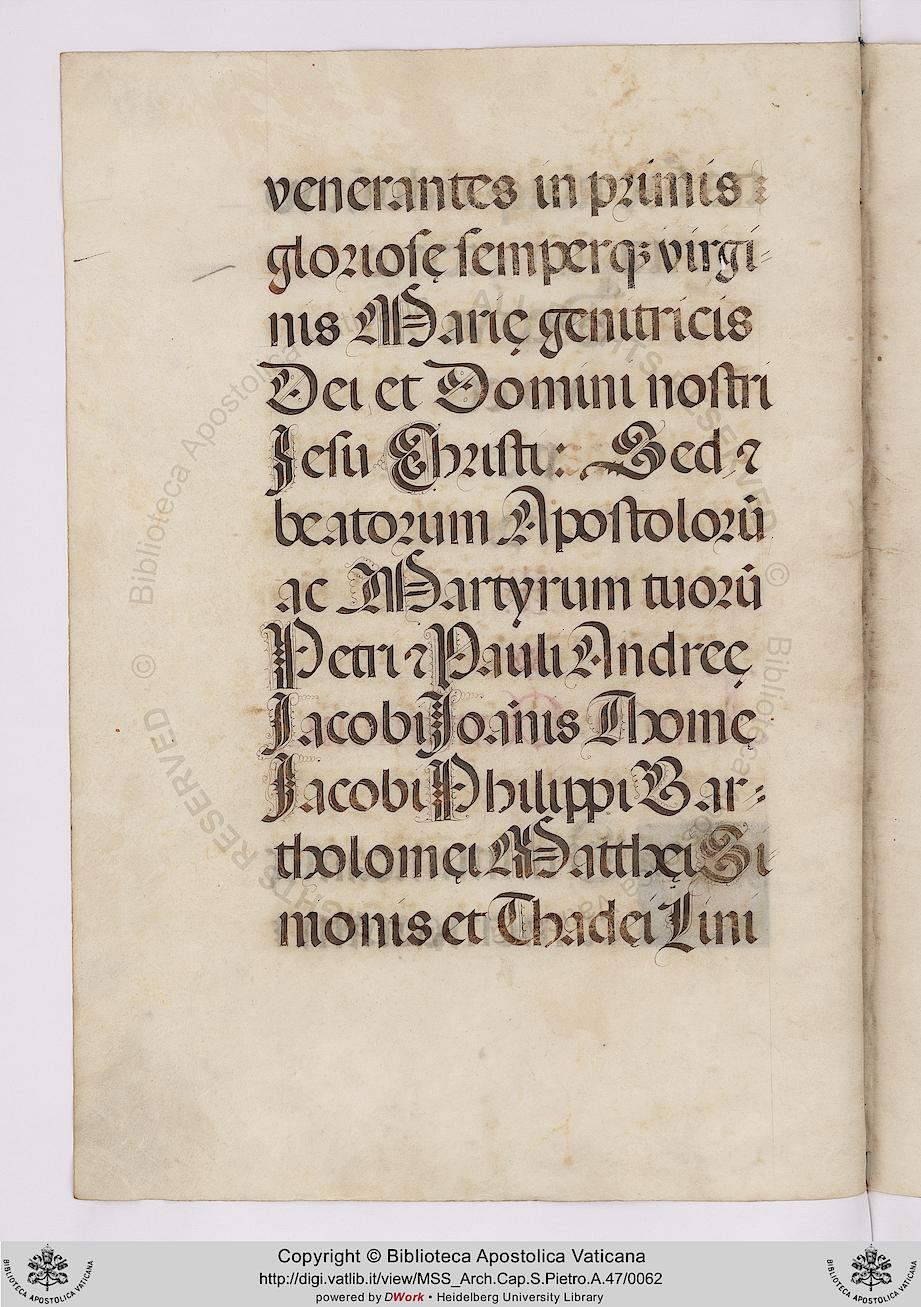 venerantes in primis
gloriosę semperq; virgi-
nis Marię genitricis
Dei et Domini nostri
Jesu Christi: Sed ⁊
beatorum Apostolorū
ac Martyrum tuorū
Petri ⁊ Pauli Andreę
Jacobi Joānis Thomę
Jacobi Philippi Bar-
tholomęi Matthęi Si
monis et Thadęi Lini
© Biblioteca Apostolica Vaticana
ALL RIGHTS RESERVED
Copyright © Biblioteca Apostolica Vaticana
http://digi.vatlib.it/view/MSS_Arch.Cap.S.Pietro.A.47/0062
powered by DWork • Heidelberg University Library
BIBLIOTECA APOSTOLICA VATICANA
BIBLIOTECA APOSTOLICA VATICANA